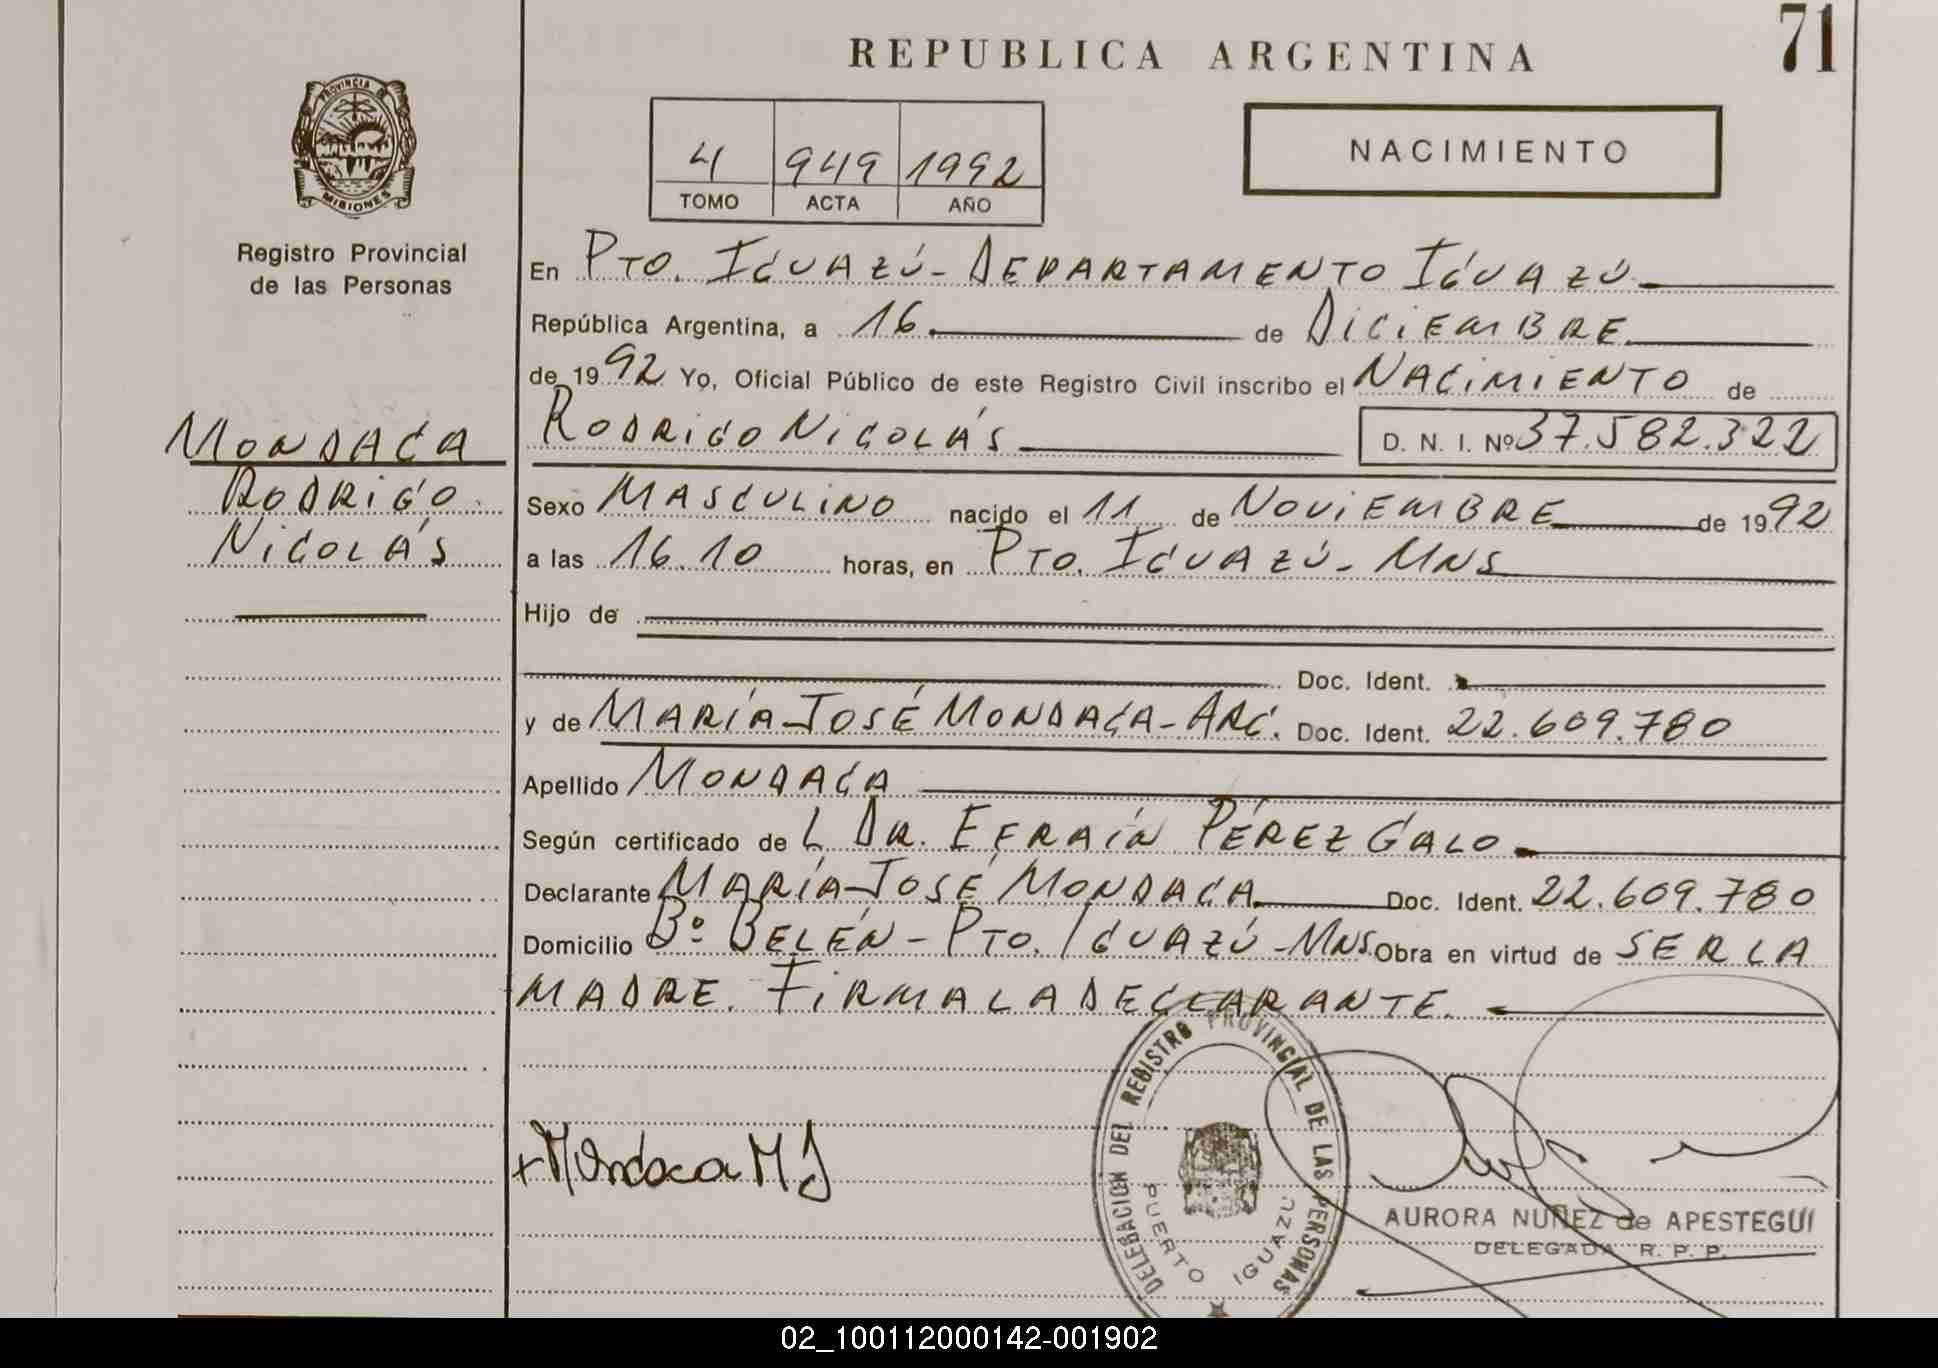 71
REPUBLICA ARGENTINA
PROVINCIA DE
MISIONES
Registro Provincial
de las Personas
4 949 1992
TOMO ACTA AÑO
NACIMIENTO
En PTO. IGUAZÚ - DEPARTAMENTO IGUAZÚ
República Argentina, a 16 de DICIEMBRE
de 1992 Yo, Oficial Público de este Registro Civil inscribo el NACIMIENTO de
RODRIGO NICOLÁS D. N. I. Nº 37.582.322
MONDACA
RODRIGO
NICOLÁS
Sexo MASCULINO nacido el 11 de NOVIEMBRE de 1992
a las 16.10 horas, en PTO. IGUAZÚ - MNS
Hijo de
Doc. Ident.
y de MARÍA JOSÉ MONDACA - ARG. Doc. Ident. 22.609.780
Apellido MONDACA
Según certificado de L DR. EFRAÍN PÉREZ GALO
Declarante MARÍA JOSÉ MONDACA Doc. Ident. 22.609.780
Domicilio Bº BELÉN - PTO. IGUAZÚ - MNS. Obra en virtud de SER LA
MADRE. FIRMA LA DECLARANTE.
+Mondaca M J
DELEGACION DEL REGISTRO PROVINCIAL DE LAS PERSONAS
PUERTO IGUAZU
AURORA NUÑEZ de APESTEGUI
DELEGADA R. P. P.
02_100112000142-001902